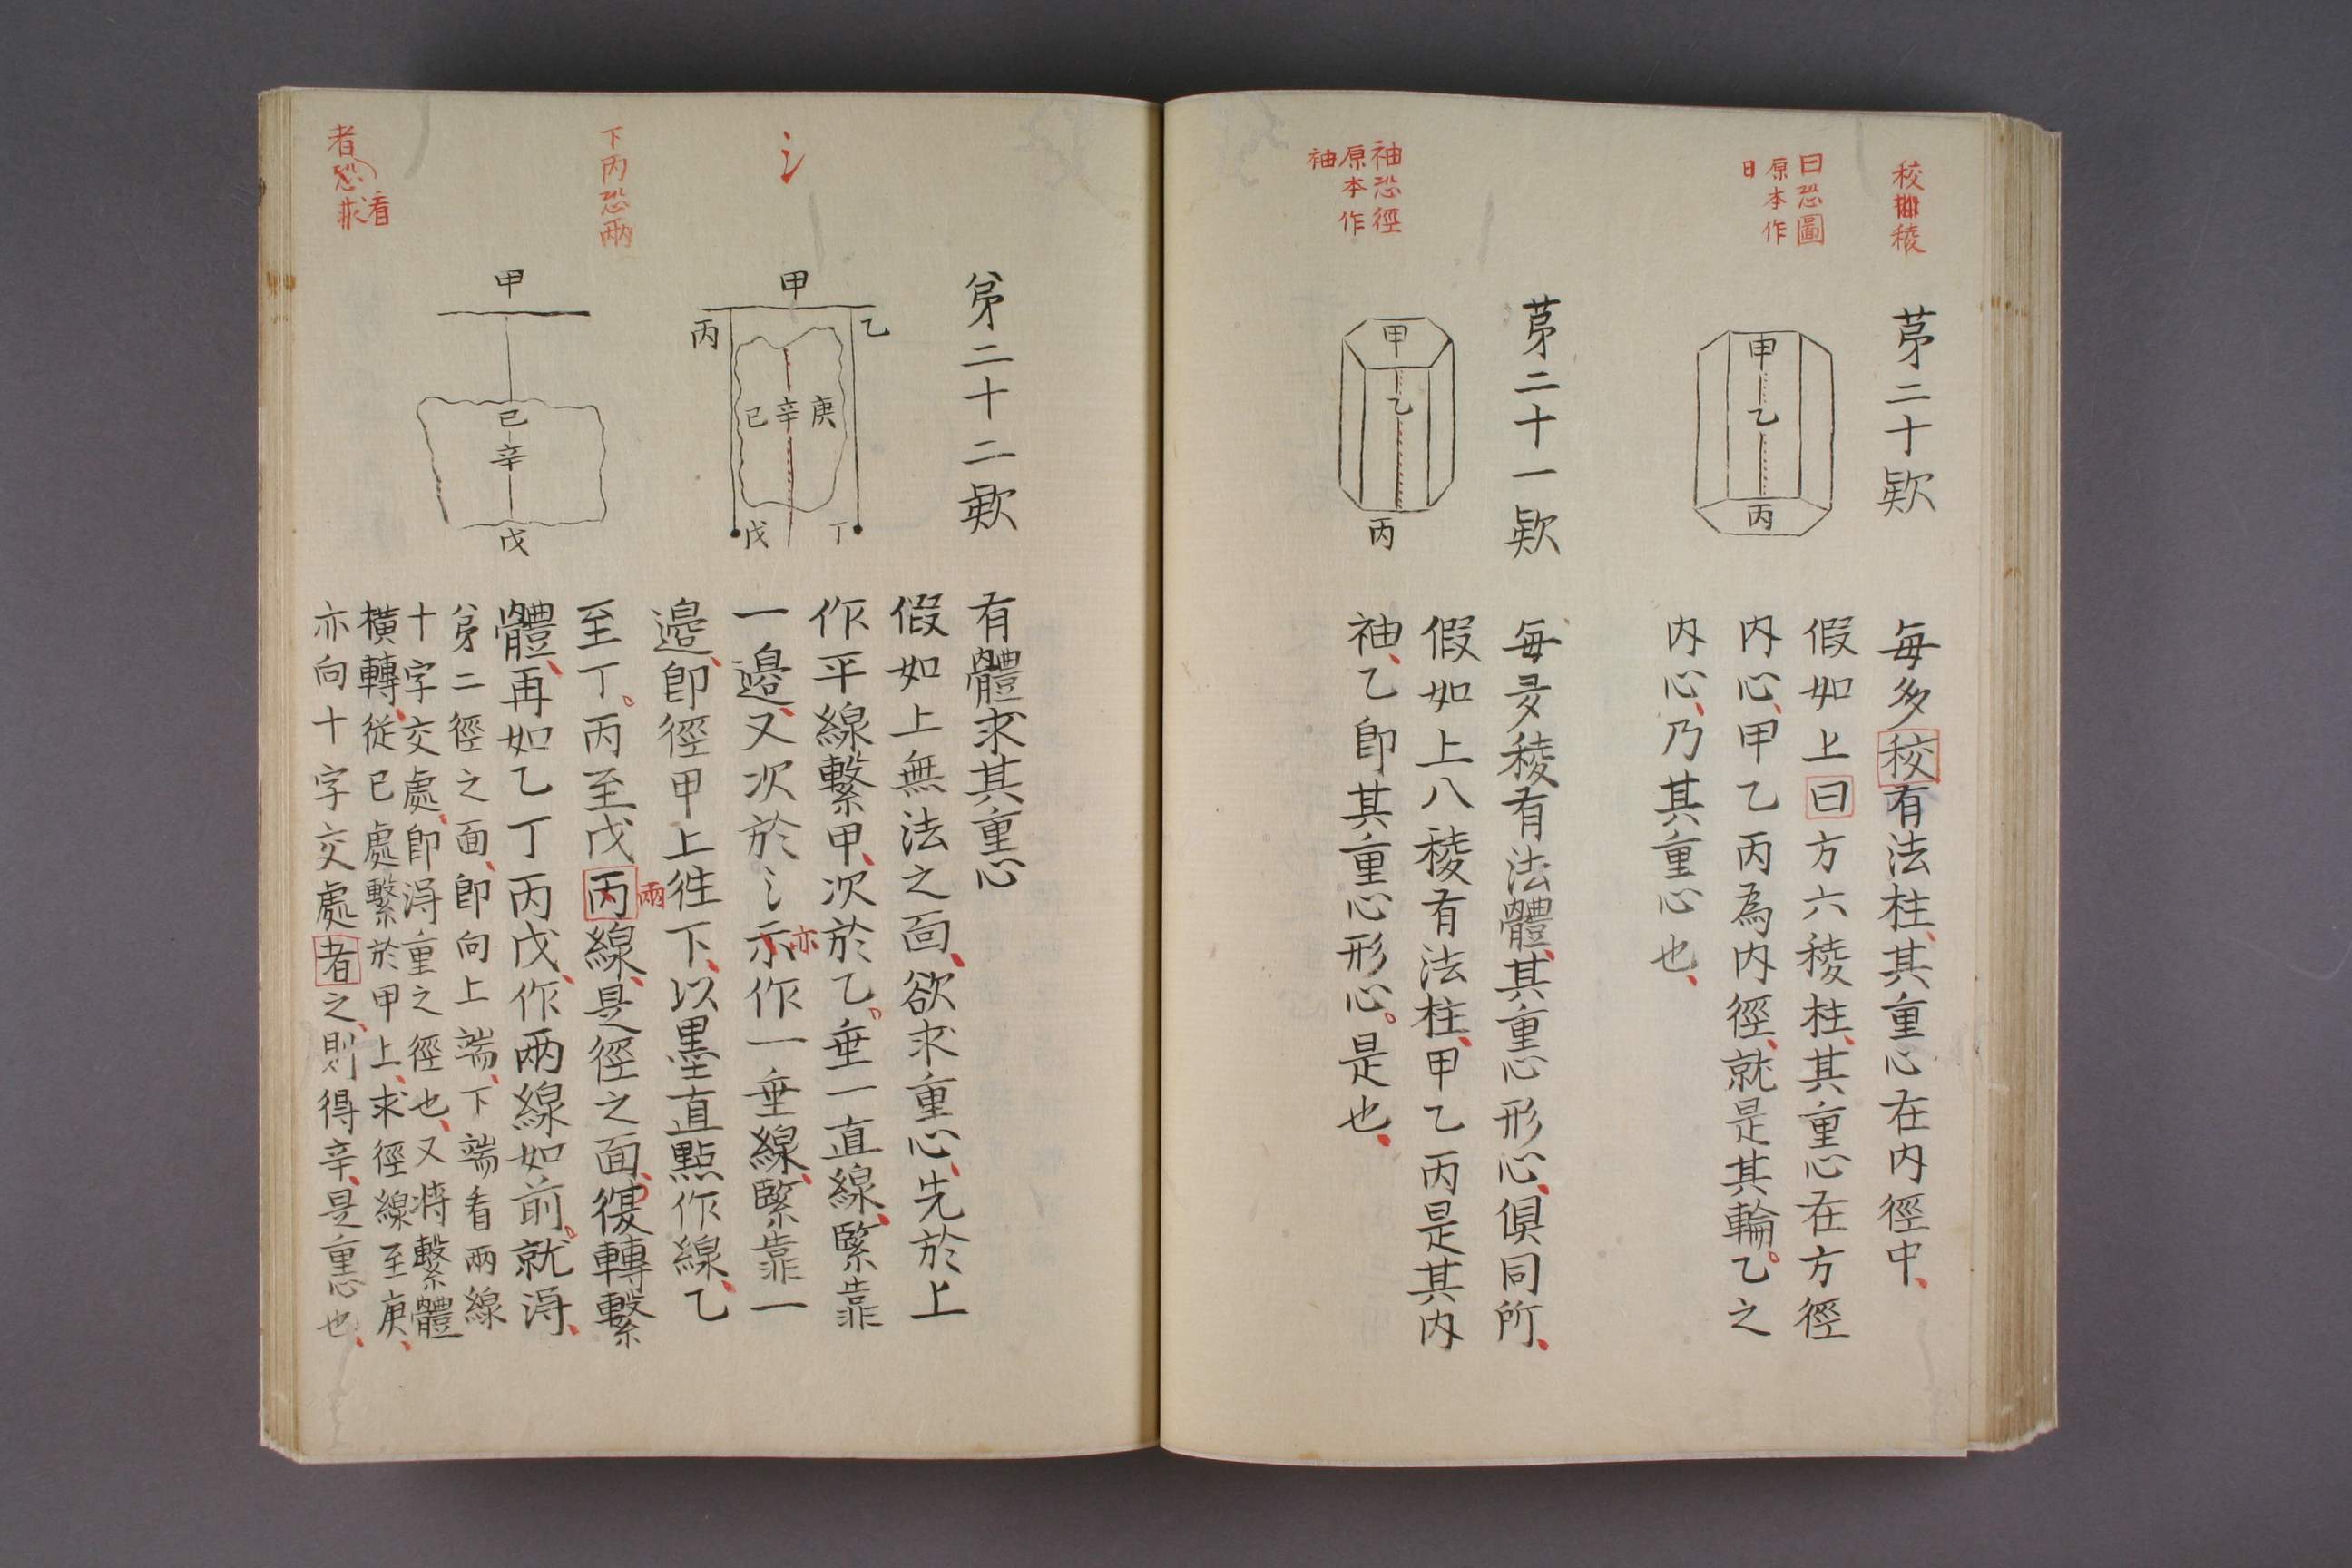 校
稜
曰恐圖
原本作
日
茅二十欵
甲
乙
丙
每多校有法柱其重心在内徑中
假如上曰方六稜柱其重心在方徑
内心甲乙丙為内徑就是其輪乙之
内心乃其重心也
袖恐徑
原本作
袖
茅二十一欵
甲
乙
丙
每多稜有法體其重心形心俱同所
假如上八稜有法柱甲乙丙是其内
袖乙即其重心形心是也
第二十二欵
甲
乙
丙
庚
辛
己
丁
戊
下丙恐兩
甲
己
辛
戊
者恐看
有體求其重心
假如上無法之面欲求重心先於上
作平線繫甲次於乙垂一直線緊靠
一邉又次於⺀示作一垂線緊靠一
亦
邉即徑甲上徃下以墨直㸃作線乙
至丁丙至戊丙線是徑之面復轉繫
兩
體再如乙丁丙戊作兩線如前就淂
第二徑之面即向上端下端看兩線
十字交處即淂重之徑也又将繫體
横轉從已處繫於甲上求徑線至庚
亦向十字交處者之則得辛是重心也